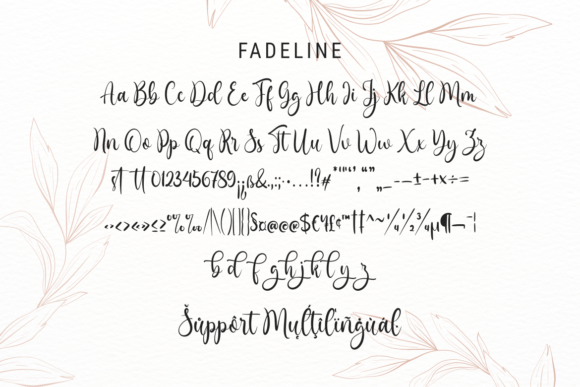 FADELINE
Aa Bb Cc Dd Ee Ff Gg Hh Ii Jj Kk Ll Mm
Nn Oo Pp Qq Rr Ss Tt Uu Vv Ww Xx Yy Zz
st tt 0123456789¡¿ß&.,:;·…!?#"'"'‘’‚“”„_-–—±-+×÷=
$€¥£¢™†‡^~⁄¼½¾µ¶¬¯¦
b d f g h j k l y z
Šùppôrt Mųļţįlïñģùàl